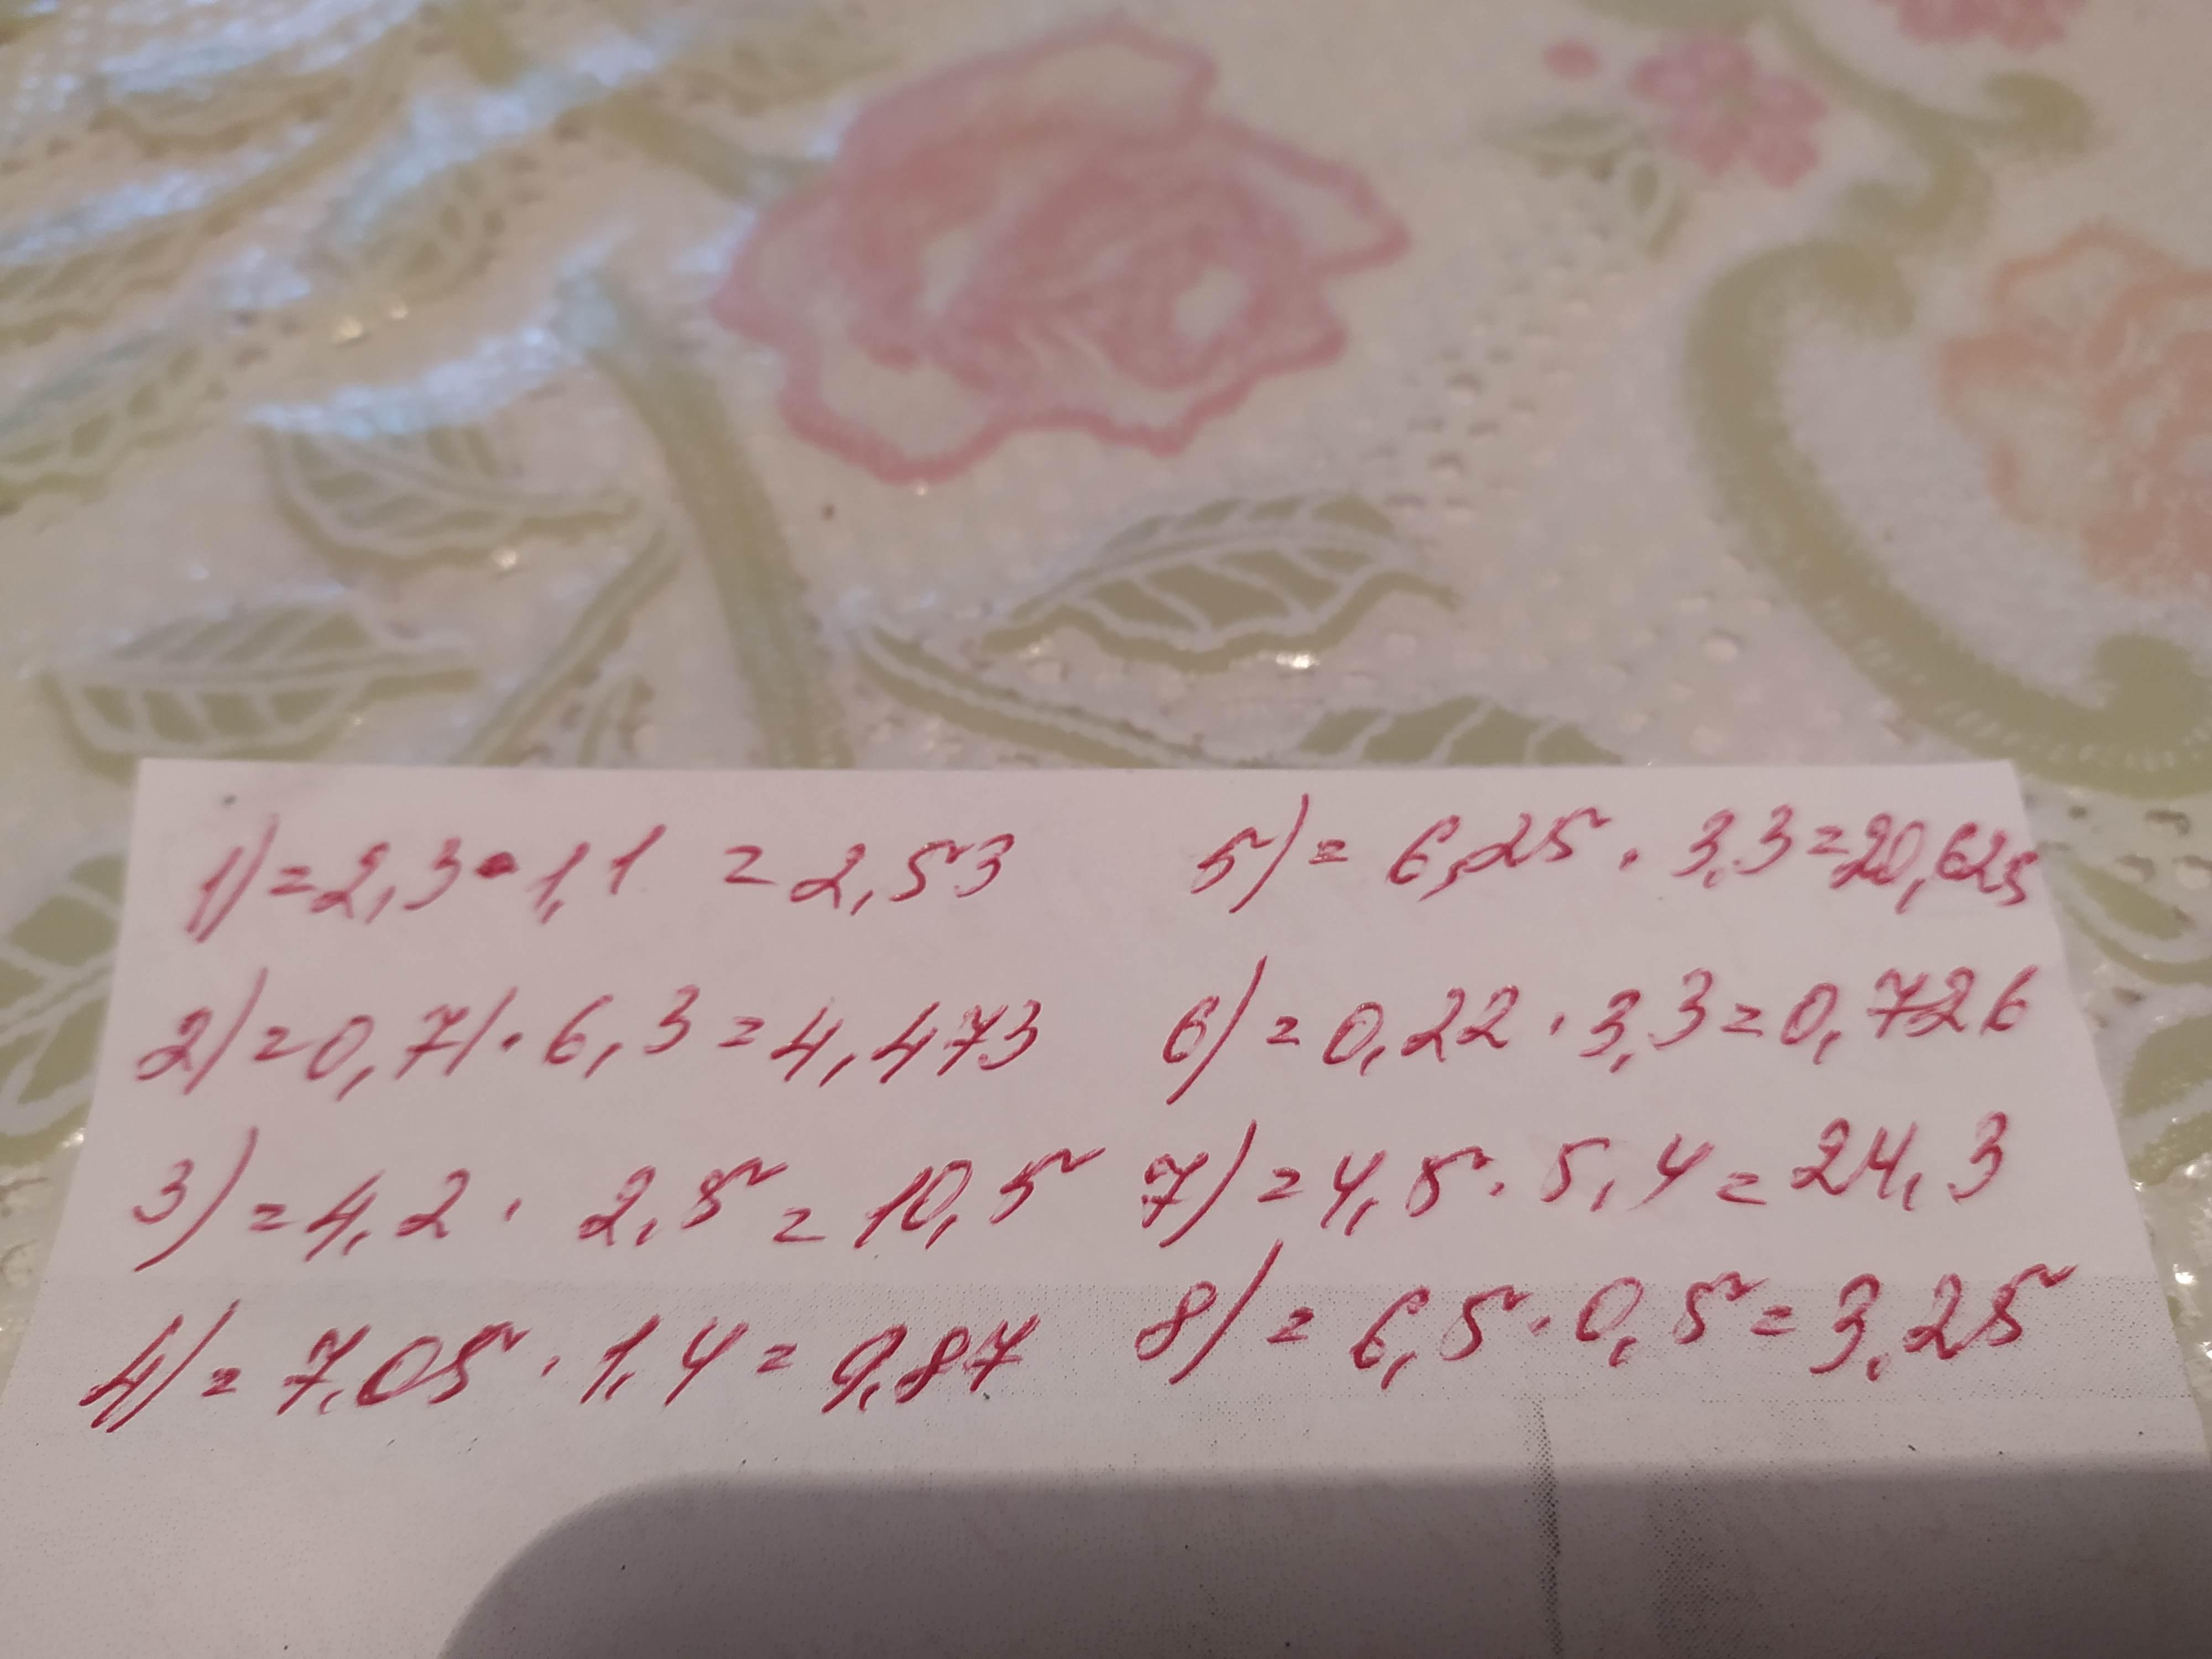 1) = 2,3 · 1,1 = 2,53
2) = 0,71 · 6,3 = 4,473
3) = 4,2 · 2,5 = 10,5
4) = 7,05 · 1,4 = 9,87
5) = 6,25 · 3,3 = 20,625
6) = 0,22 · 3,3 = 0,726
7) = 4,5 · 5,4 = 24,3
8) = 6,5 · 0,5 = 3,25